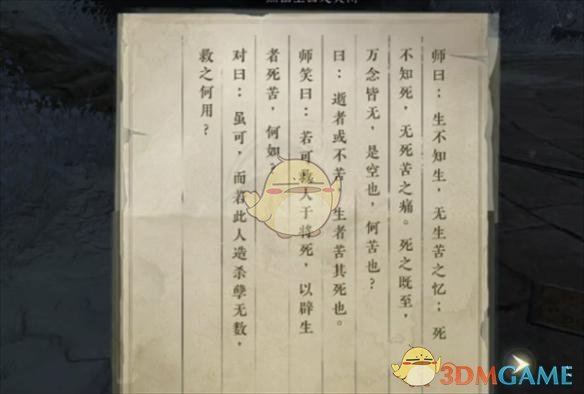 师曰：生不知生，无生苦之忆；死
不知死，无死苦之痛。死之既至，
万念皆无，是空也，何苦也？
曰：逝者或不苦，生者苦其死也。
师笑曰：若可救人于将死，以辟生
者死苦，何如？
对曰：虽可，而若此人造杀孽无数，
救之何用？
3DMGAME